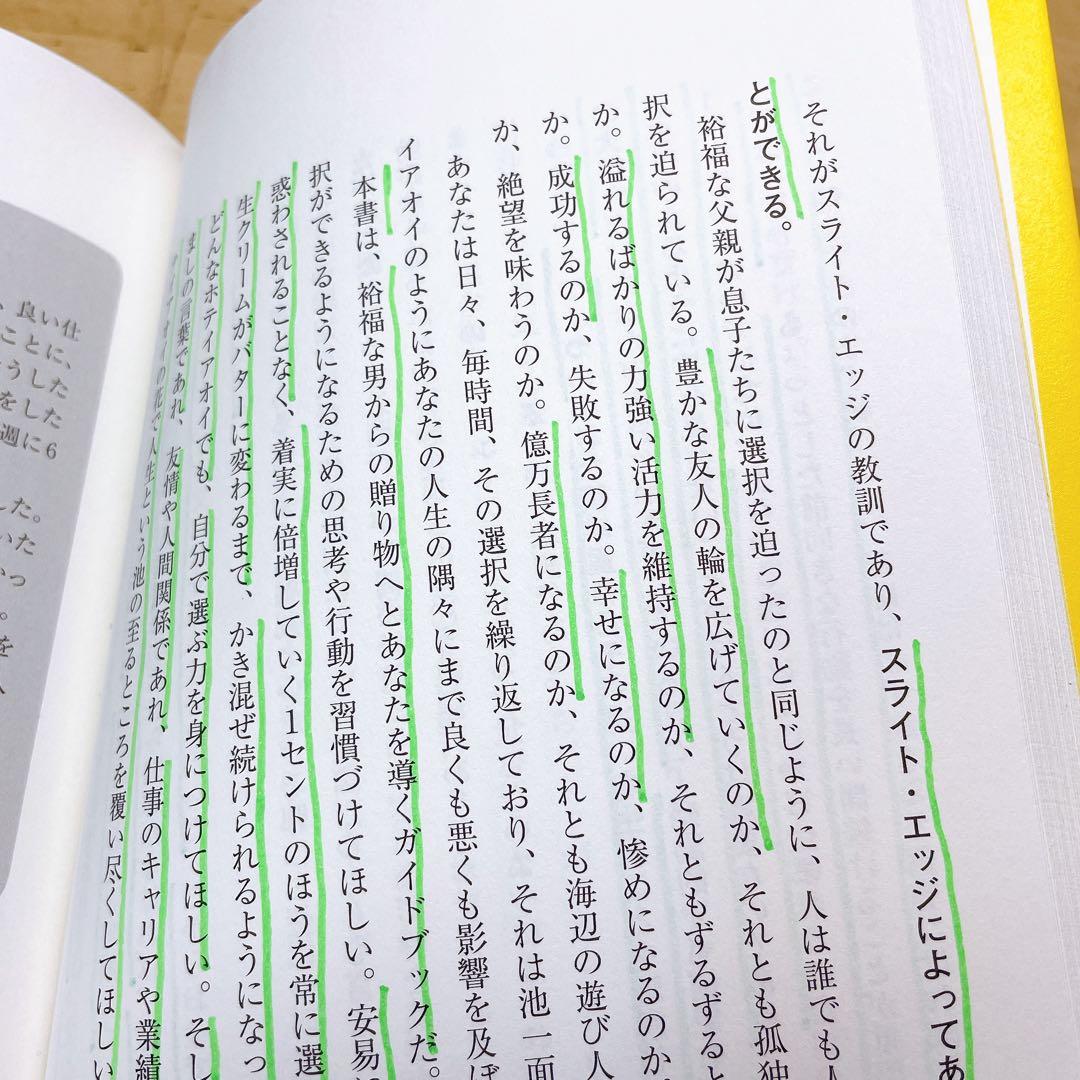 それがスライト・エッジの教訓であり、スライト・エッジによってあ
とができる。
裕福な父親が息子たちに選択を迫ったのと同じように、人は誰でも人
択を迫られている。豊かな友人の輪を広げていくのか、それとも孤独
か。溢れるばかりの力強い活力を維持するのか、それともずるずると
か。成功するのか、失敗するのか。幸せになるのか、惨めになるのか。
か、絶望を味わうのか。億万長者になるのか、それとも海辺の遊び人
あなたは日々、毎時間、その選択を繰り返しており、それは池一面
イアオイのようにあなたの人生の隅々にまで良くも悪くも影響を及ぼ
本書は、裕福な男からの贈り物へとあなたを導くガイドブックだ。
択ができるようになるための思考や行動を習慣づけてほしい。安易に
惑わされることなく、着実に倍増していく1セントのほうを常に選
生クリームがバターに変わるまで、かき混ぜ続けられるようになっ
どんなホテイアオイでも、自分で選ぶ力を身につけてほしい。そし
ましの言葉であれ、友情や人間関係であれ、仕事のキャリアや業績
アオイの花で人生という池の至るところを覆い尽くしてほしい
、良い仕
ことに、
うした
をした
週に6
した。
いた
かっ
。
を